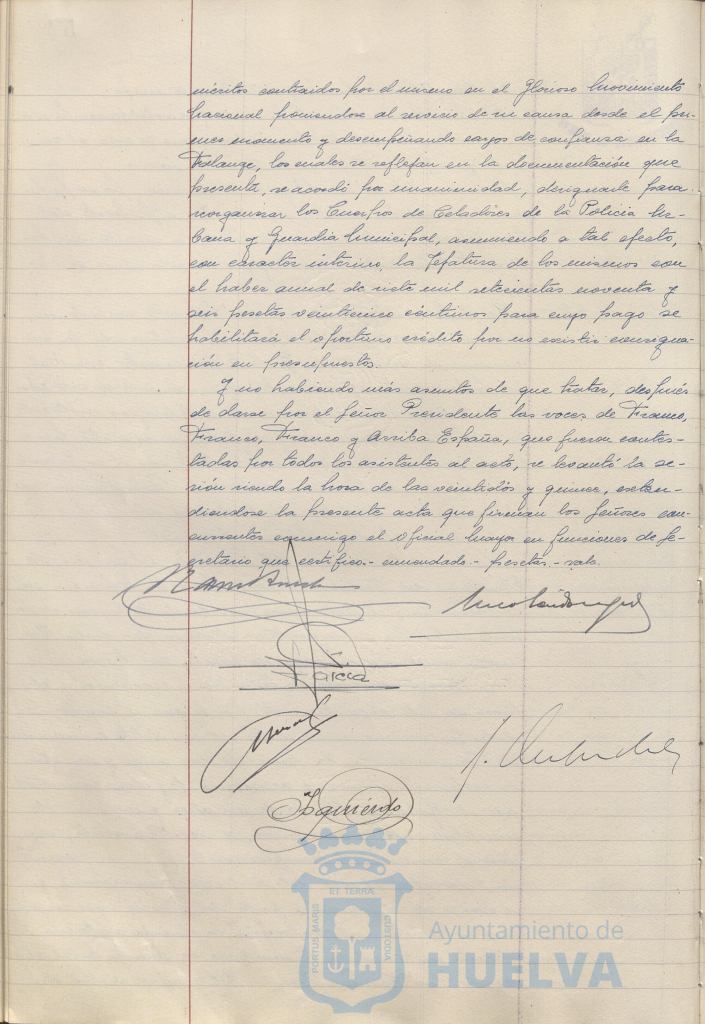 méritos contraidos por el mismo en el Glorioso Movimiento
Nacional poniendose al servicio de su causa desde el pri-
mer momento y desempeñando cargos de confianza en la
Falange, los cuales se reflejan en la documentación que
presenta, se acordó por unanimidad, designarle para
reorganizar los Cuerpos de Celadores de la Policia Ur-
bana y Guardia Municipal, asumiendo a tal efecto,
con caracter interino, la Jefatura de los mismos con
el haber anual de siete mil setecientas noventa y
seis pesetas veinticinco céntimos para cuyo pago se
habilitará el oportuno crédito por no existir consigna-
ción en presupuestos.
Y no habiendo más asuntos de que tratar, después
de darse por el Señor Presidente las voces de Franco,
Franco, Franco y Arriba España, que fueron contes-
tadas por todos los asistentes al acto, se levantó la se-
sión siendo la hora de las veintidós y quince, exten-
diendose la presente acta que firman los Señores con-
currentes conmigo el oficial mayor en funciones de Se-
cretario que certifico.- enmendado.- pesetas.- vale.
García
Izquierdo
ET TERRÆ
PORTUS MARIS
CUSTODIA
Ayuntamiento de
HUELVA